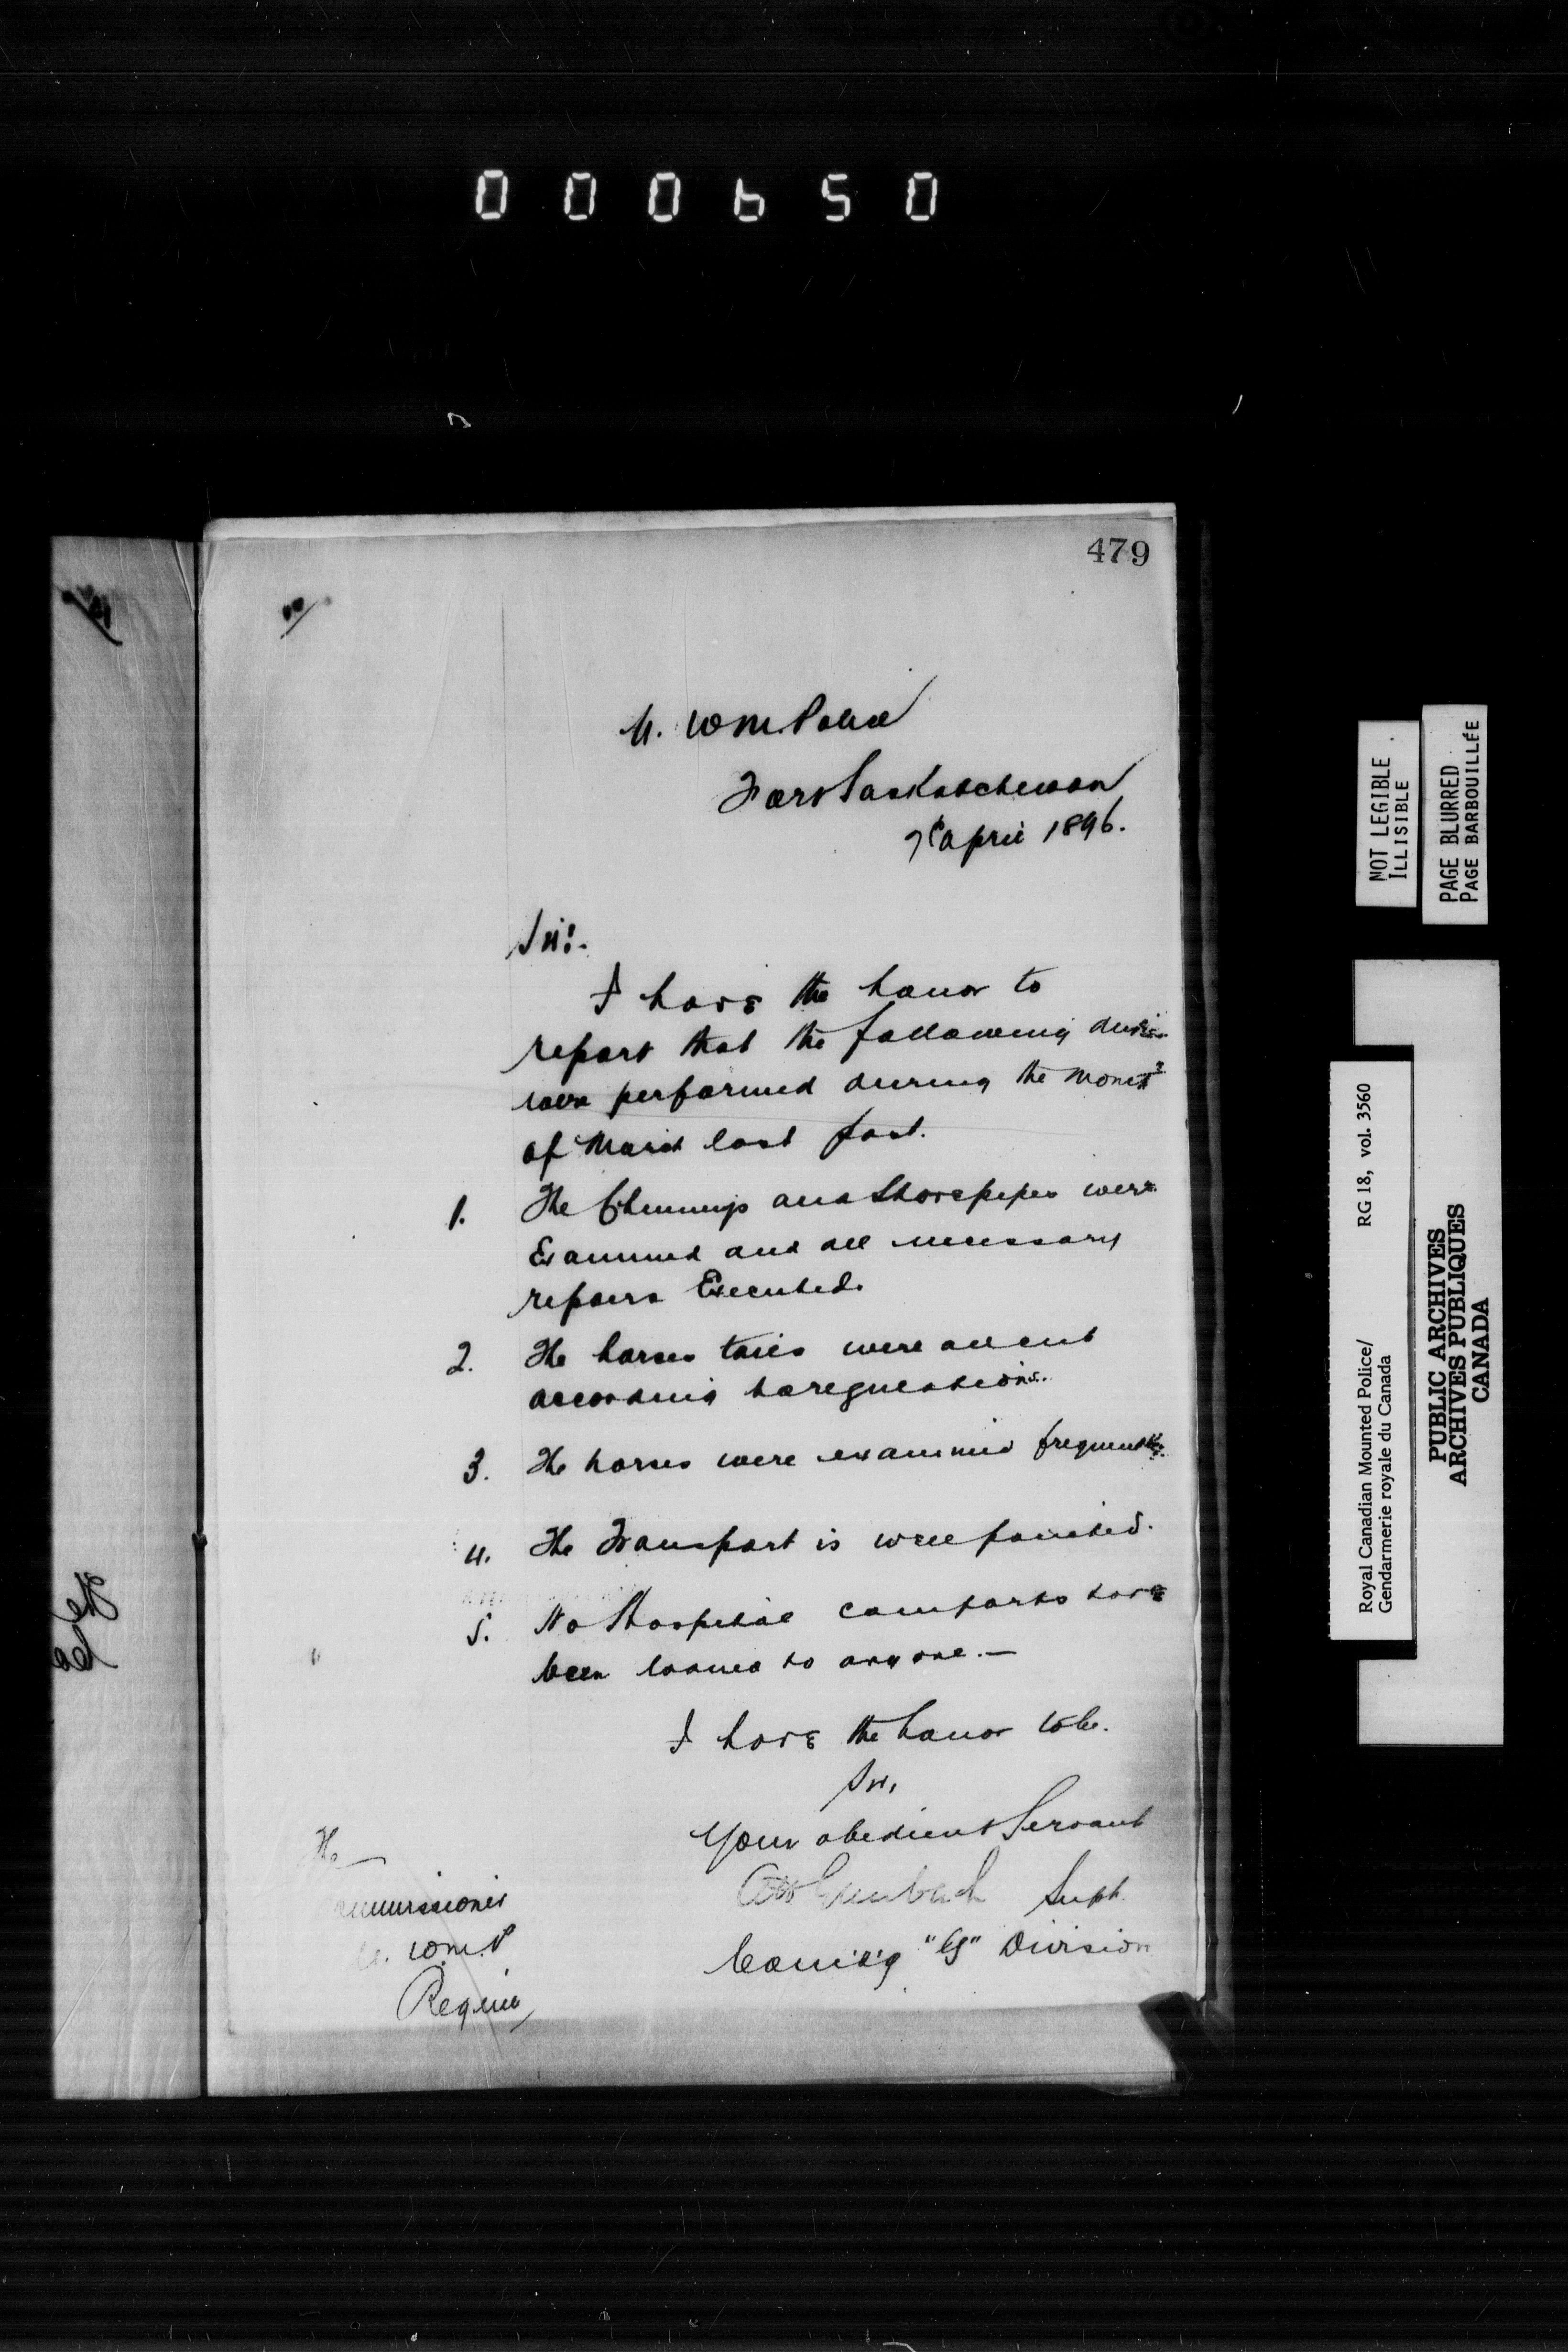 000650
479
N. W. M. Police
Fort Saskatchewan
7th April 1896.
Sir:-
I have the honor to
report that the following duties
were performed during the month
of March last past.
1. The Chimneys and Stovepipes were
Examined and all necessary
repairs Executed.
2. The horses tails were all cut
according to regulations.
3. The horses were examined frequently.
4. The Transport is well painted.
5. No Hospital comforts have
been loaned to anyone.—
I have the honor to be.
Sir,
Your obedient Servant
Supt.
Comd'g "G" Division
The
Commissioner
N. W. M. P
Regina
NOT LEGIBLE
ILLISIBLE
PAGE BLURRED
PAGE BARBOUILLÉE
Royal Canadian Mounted Police/ RG 18, vol. 3560
Gendarmerie royale du Canada
PUBLIC ARCHIVES
ARCHIVES PUBLIQUES
CANADA